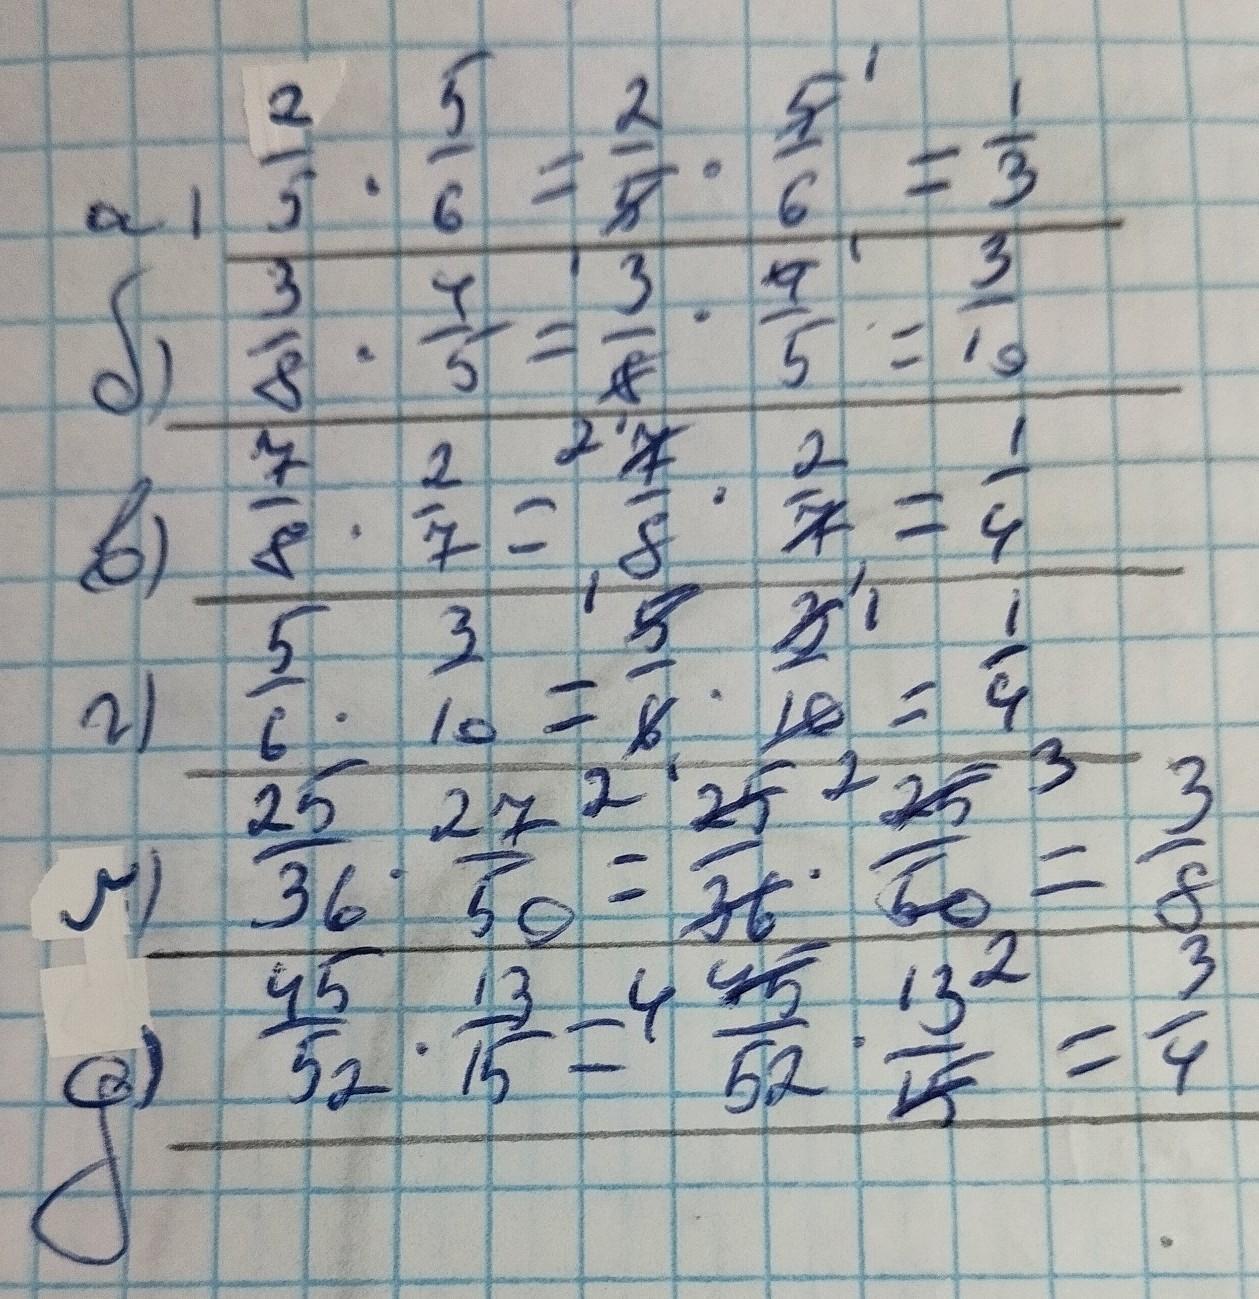 а) 2/5 · 5/6 = 2/5 · 5/6 ¹ = 1/3
б) 3/8 · 4/5 = ¹ 3/8 · 4/5 ¹ = 3/10
в) 7/8 · 2/7 = 2 ¹ 7/8 · 2/7 = 1/4
г) 5/6 · 3/10 = ¹ 5/6 · 3/10 ¹ ¹ = 1/4
25/36 · 27/50 = 2 ¹ 25/36 · 2 25/50 3 = 3/8
д) 45/52 · 13/15 = 4 45/52 · 13/15 2 = 3/4